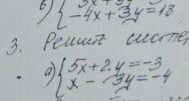 в) { 3x + 3y
-4x + 3y = 18
3. Решит систе
а) { 5x + 2y = -3
x - 3y = -4